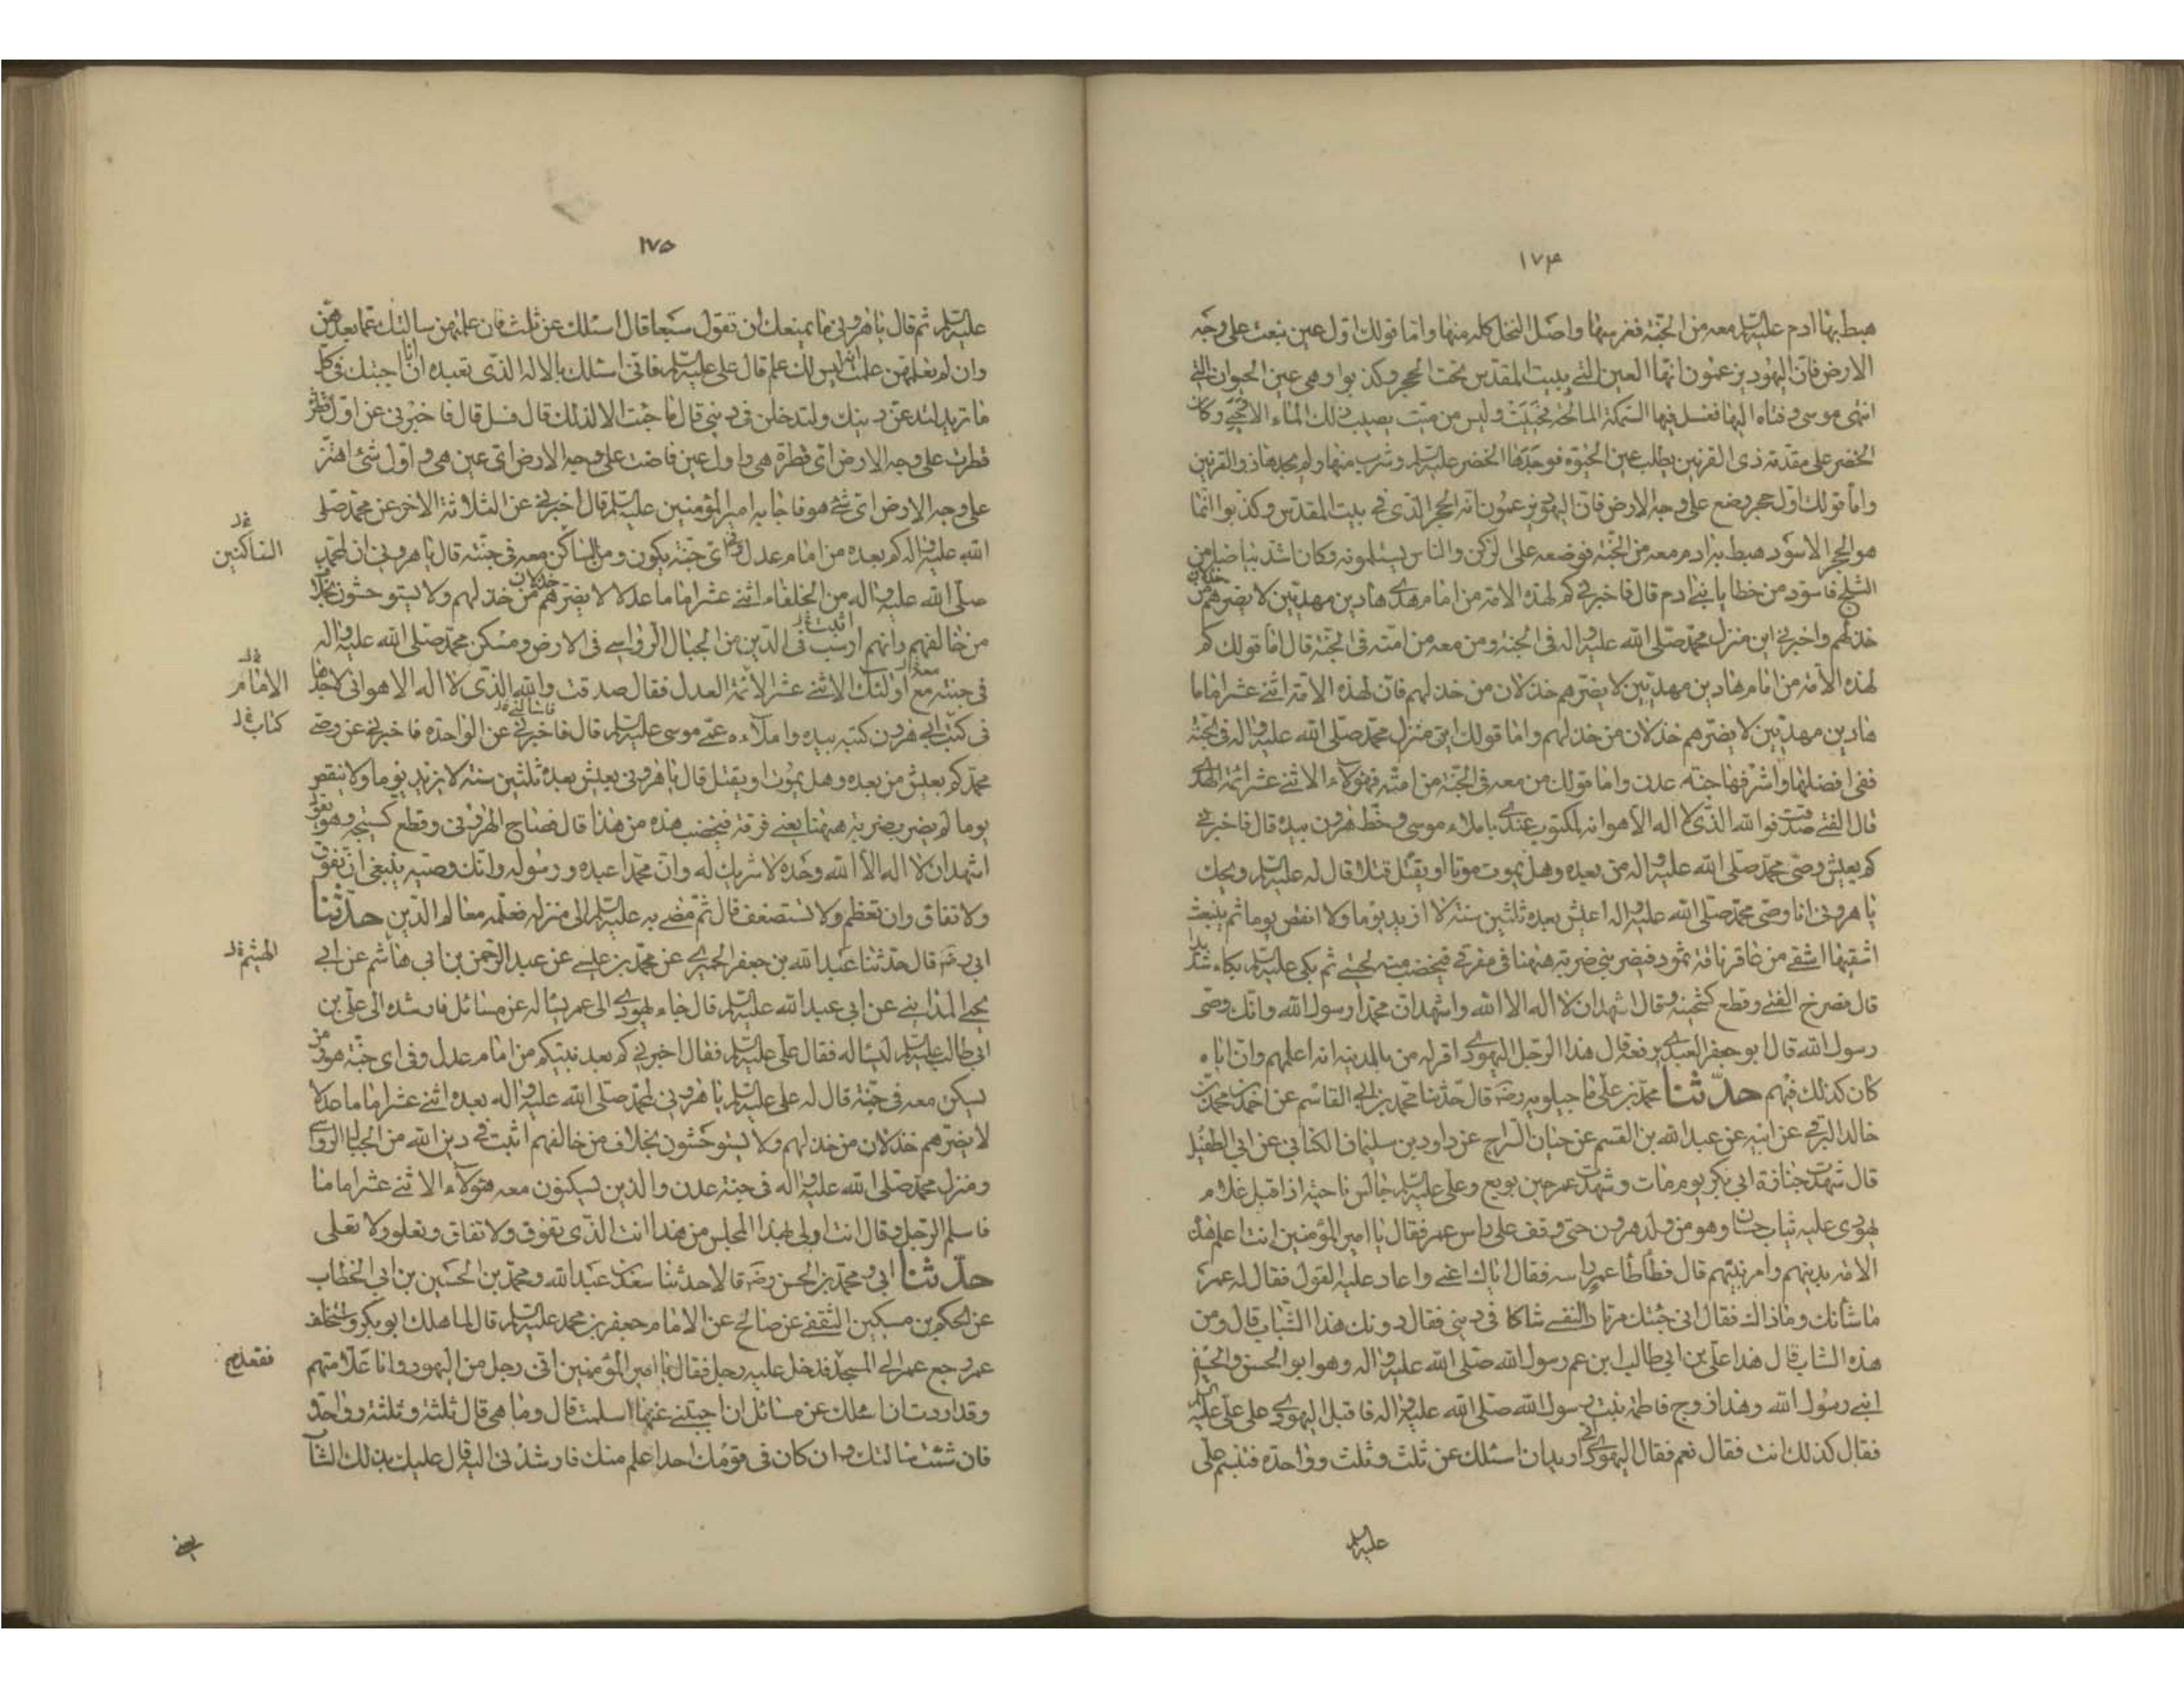 ١٧۴
هبط بها ادم علیه‌السلم معه من الجنة فغرسها واصل النخل كله منها واما قولك اول عين نبعت على وجه
الارض فان اليهود يزعمون انها العين التى ببيت المقدس تحت الحجر وكذبوا وهى عين الحيوان التى
انتهى موسى وفتاه اليها فغسل فيها السمكة المالحة فحييت وليس من ميت يصيب ذلك الماء الا حيى وكان
الخضر على مقدمة ذى القرنين يطلب عين الحيوة فوجدها الخضر علیه‌السلم وشرب منها ولم يجدها ذو القرنين
واما قولك اول حجر وضع على وجه الارض فان اليهود يزعمون انه الحجر الذى فى بيت المقدس وكذبوا انما
هو الحجر الاسود هبط به ادم معه من الجنة فوضعه على الركن والناس يستلمونه وكان اشد بياضا من
الثلج فاسود من خطايا بنى ادم قال فاخبرنى كم لهذه الامة من امام هدى هادين مهديين لا يضرهم خذلان من
خذلهم واخبرنى اين منزل محمد صلى الله عليه واله فى الجنة ومن معه من امته فى الجنة قال اما قولك كم
لهذه الامة من امام هادين مهديين لا يضرهم خذلان من خذلهم فان لهذه الامة اثنى عشر اماما
هادين مهديين لا يضرهم خذلان من خذلهم واما قولك اين منزل محمد صلى الله عليه واله فى الجنة
ففى افضلها واشرفها جنة عدن واما قولك من معه فى الجنة من امته فهؤلاء الاثنى عشر ائمة الهدى
قال الفتى صدقت فوالله الذى لا اله الا هو انه لمكتوب عندى باملاء موسى وخط هرون بيده قال فاخبرنى
كم يعيش وصى محمد صلى الله عليه واله من بعده وهل يموت موتا او يقتل قتلا قال له علیه‌السلم ويحك
يا هرونى انا وصى محمد صلى الله عليه واله اعيش بعده ثلثين سنة لا ازيد يوما ولا انقص يوما ثم ينبعث
اشقيها اشقى من عاقر ناقة ثمود فيضربنى ضربة ههنا فى مفرقى فيخضب منه لحيتى ثم بكى علیه‌السلم بكاء شديدا
قال فصرخ الفتى وقطع كستيجه وقال اشهد ان لا اله الا الله واشهد ان محمدا رسول الله وانك وصى
رسول الله قال ابو جعفر العبدى يرفعه قال هذا الرجل اليهودى اقر له من بالمدينة انه اعلمهم وان اباه
كان كذلك فيهم حدثنا محمد بن على ماجيلويه رضه قال حدثنا محمد بن ابى القاسم عن احمد بن محمد بن
خالد البرقى عن ابيه عن عبد الله بن القسم عن حيان السراج عن داود بن سليمان الكنانى عن ابى الطفيل
قال شهدت جنازة ابى بكر يوم مات وشهدت عمر حين بويع وعلى علیه‌السلم جالس ناحية اذ اقبل غلام
يهودى عليه ثياب حسان وهو من ولد هرون حتى وقف على راس عمر فقال يا امير المؤمنين انت اعلم هذه
الامة بدينهم وامر نبيهم قال فطأطأ عمر راسه فقال اياك اعنى واعاد عليه القول فقال له عمر
ما شأنك وما ذاك فقال انى جئتك مرتادا لنفسى شاكا فى دينى فقال دونك هذا الشاب قال ومن
هذا الشاب قال هذا على بن ابى طالب ابن عم رسول الله صلى الله عليه واله وهو ابو الحسن والحسين
ابنى رسول الله وهذا زوج فاطمة بنت رسول الله صلى الله عليه واله فاقبل اليهودى على على علیه‌السلم
فقال كذلك انت فقال نعم فقال اليهودى انى اريد ان اسئلك عن ثلث وثلث وواحدة فتبسم على
علیه‌السلم
١٧۵
علیه‌السلم ثم قال يا هرونى ما يمنعك ان تقول سبعا قال اسئلك عن ثلث فان علمتهن سالتك عما بعدهن
وان لم تعلمهن علمت انه ليس لك علم قال على علیه‌السلم فانى اسئلك بالاله الذى تعبده ان انا اجبتك فى كل
ما تريد لتدعن دينك ولتدخلن فى دينى قال ما جئت الا لذلك قال فسل قال فاخبرنى عن اول قطرة
قطرت على وجه الارض اى قطرة هى واول عين فاضت على وجه الارض اى عين هى واول شئ اهتز
على وجه الارض اى شئ هو فاجابه امير المؤمنين علیه‌السلم قال اخبرنى عن الثلاثة الاخر عن محمد صلى
الله عليه واله كم بعده من امام عدل وفى اى جنة يكون ومن الساكن معه فى جنته قال يا هرونى ان لمحمد
صلى الله عليه واله من الخلفاء اثنى عشر اماما عدلا لا يضرهم خذلان من خذلهم ولا يستوحشون بخلاف
من خالفهم وانهم ارسب فى الدين من الجبال الرواسى فى الارض ومسكن محمد صلى الله عليه واله
فى جنته مع اولئك الاثنى عشر الائمة العدل فقال صدقت والله الذى لا اله الا هو انى لاجدها
فى كتب ابى هرون كتبه بيده واملاءه عمى موسى علیه‌السلم قال فاخبرنى عن الواحدة فاخبرنى عن وصى
محمد كم يعيش من بعده وهل يموت او يقتل قال يا هرونى يعيش بعده ثلثين سنة لا يزيد يوما ولا ينقص
يوما ثم يضرب ضربة ههنا يعنى فرقه فيخضب هذه من هذا قال فصاح الهرونى وقطع كستيجه وهو يقول
اشهد ان لا اله الا الله وحده لا شريك له وان محمدا عبده ورسوله وانك وصيه ينبغى ان تفوق
ولا تفاق وان تعظم ولا تستضعف قال ثم مضى به علیه‌السلم الى منزله فعلمه معالم الدين حدثنا
ابى رضه قال حدثنا عبد الله بن جعفر الحميرى عن محمد بن عيسى عن عبد الرحمن بن ابى هاشم عن ابى
يحيى المداينى عن ابى عبد الله علیه‌السلم قال جاء يهودى الى عمر يساله عن مسائل فارشده الى على بن
ابى طالب علیه‌السلم ليساله فقال على علیه‌السلم فقال اخبرنى كم بعد نبيكم من امام عدل وفى اى جنة هو ومن
يسكن معه فى جنته قال له على علیه‌السلم يا هرونى لمحمد صلى الله عليه واله بعده اثنى عشر اماما عدلا
لا يضرهم خذلان من خذلهم ولا يستوحشون بخلاف من خالفهم اثبت فى دين الله من الجبال الرواسى
ومنزل محمد صلى الله عليه واله فى جنة عدن والذين يسكنون معه هؤلاء الاثنى عشر اماما
فاسلم الرجل وقال انت اولى بهذا المجلس من هذا انت الذى تفوق ولا تفاق وتعلو ولا تعلى
حدثنا ابى ومحمد بن الحسن رضه قالا حدثنا سعد بن عبد الله ومحمد بن الحسين بن ابى الخطاب
عن الحكم بن مسكين الثقفى عن صالح عن الامام جعفر بن محمد علیه‌السلم قال لما هلك ابو بكر واستخلف
عمر رجع عمر الى المسجد فدخل عليه رجل فقال يا امير المؤمنين انى رجل من اليهود وانا علامتهم
وقد اردت ان اسئلك عن مسائل ان اجبتنى عنها اسلمت قال وما هى قال ثلثة وثلثة وواحدة
فان شئت سالتك وان كان فى قومك احد اعلم منك فارشدنى اليه قال عليك بذلك الشاب
الساكنين
الامام
كتاب
الهيثم
فقعد
يعنى